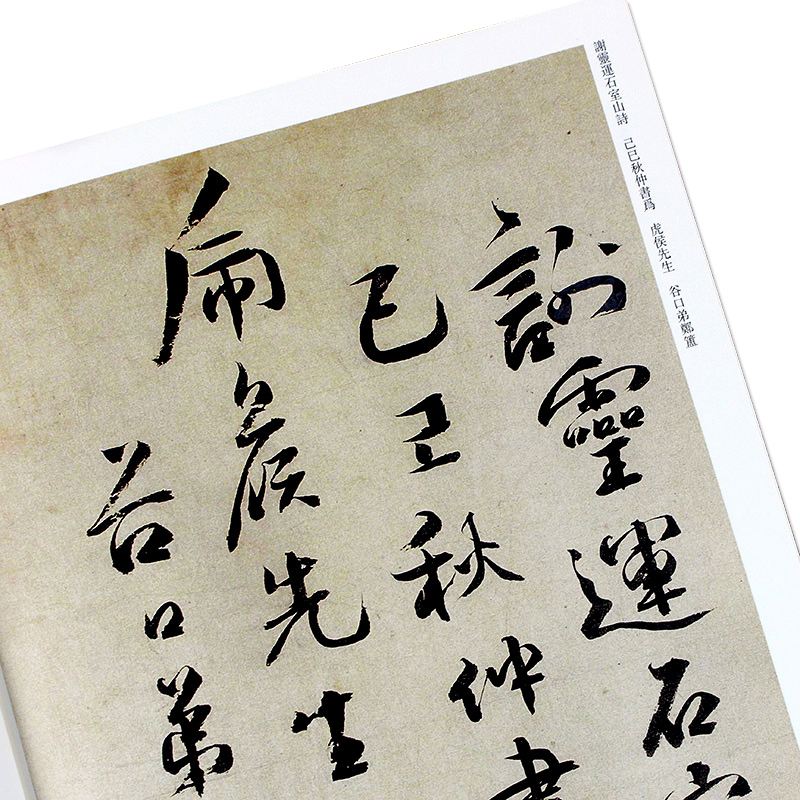 謝靈運石室山詩 己巳秋仲書爲 虎侯先生 谷口弟鄭簠
謝靈運石室
己巳秋仲書
虎侯先生
谷口弟